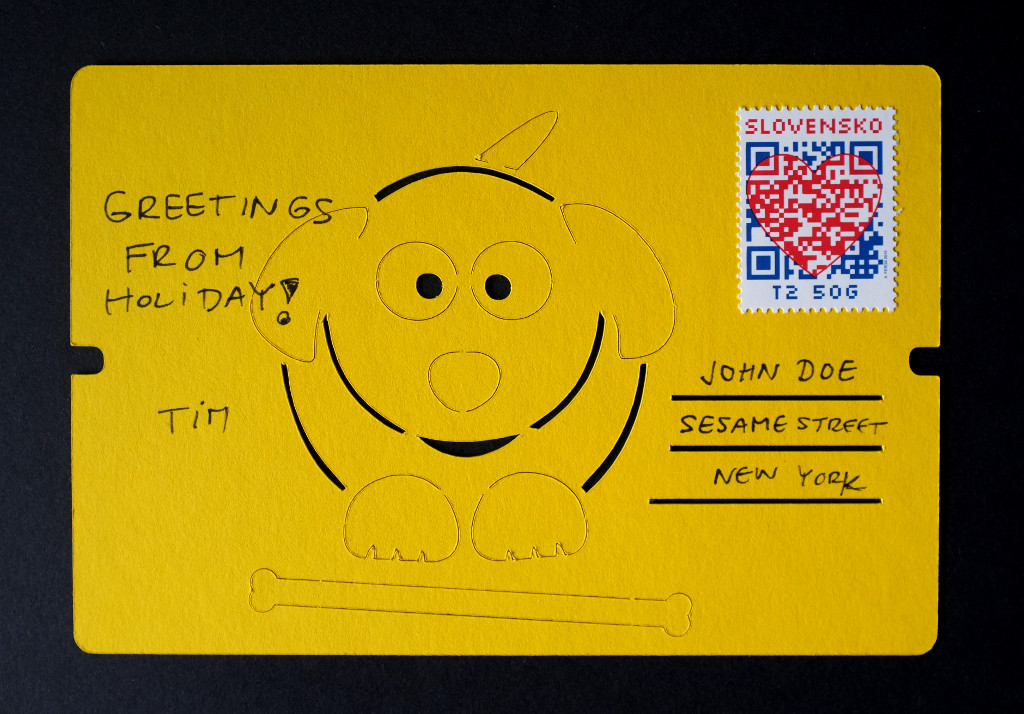 GREETINGS
FROM
HOLiDAY!
TiM
SLOVENSKO
T2 50G
JOHN DOE
SESAME STREET
NEW YORK